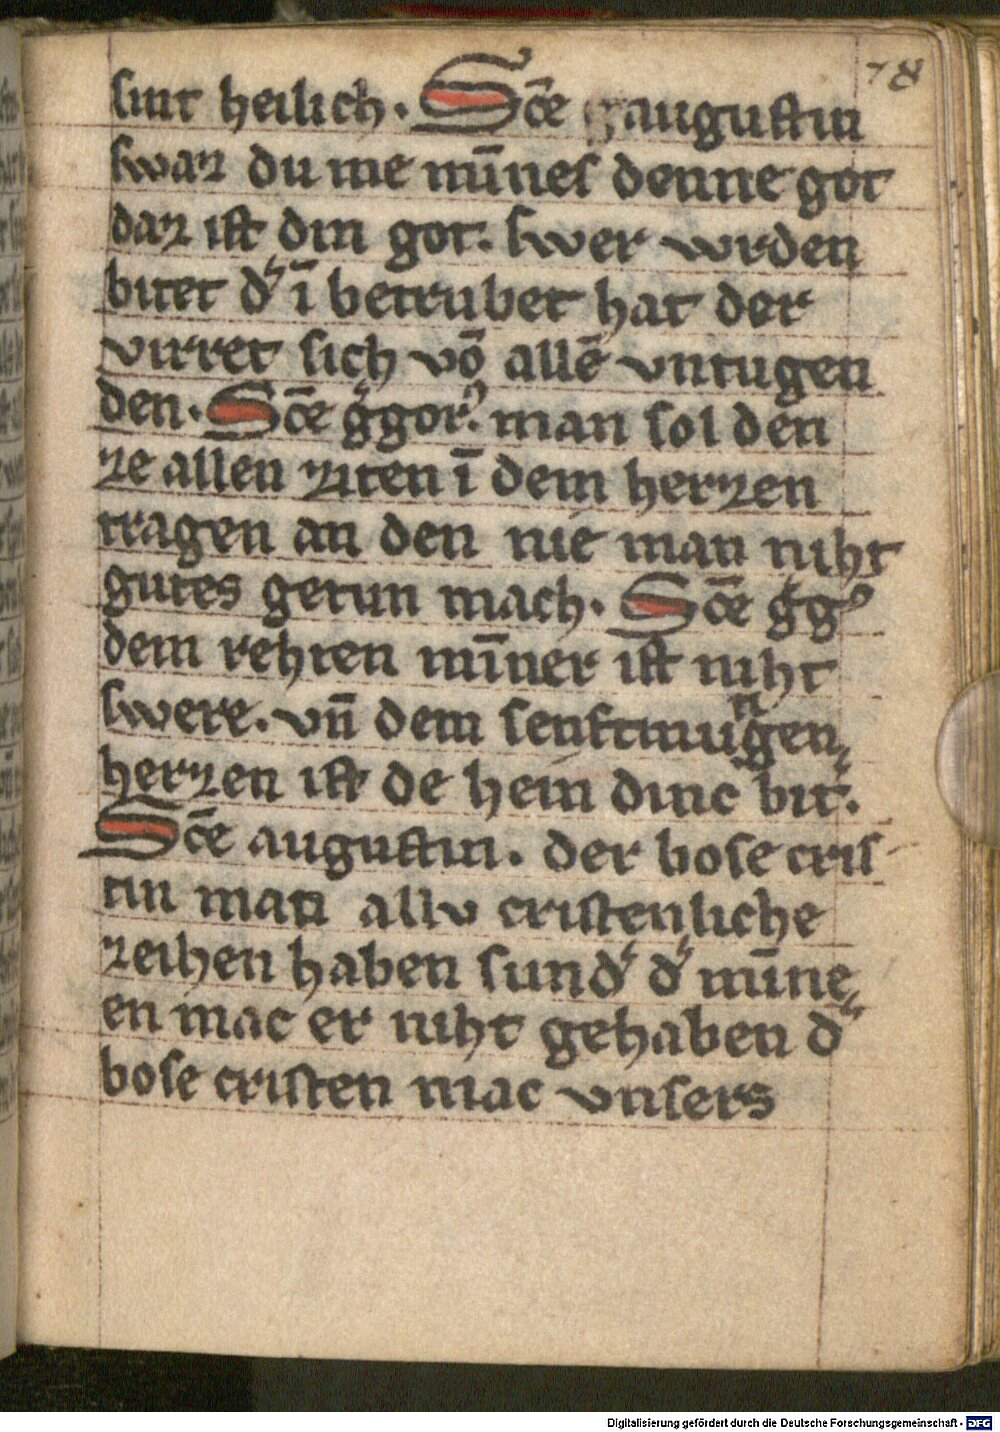 78
sint heilich. Sc̄e augustin
swaz du me mīnes denne got
daz ist din got. swer wrden
bitet dˢ ī betrubet hat der
virret sich vō allē vntugen
den. Sc̄e g̍gorꝰ man sol den
ze allen ziten ī dem herzen
tragen an den nie man niht
gutes getun mach. Sc̄e g̍gꝰ
dem rehten mīner ist niht
swere. vn̄ dem senftmutigen
herzen ist de hein dinc bit̍.
Sc̄e augustin. der bose cris
tin man allv cristenliche
zeihen haben sundˢ dˢ mīne
en mac er niht gehaben dˢ
bose cristen mac vnsers
Digitalisierung gefördert durch die Deutsche Forschungsgemeinschaft - DFG